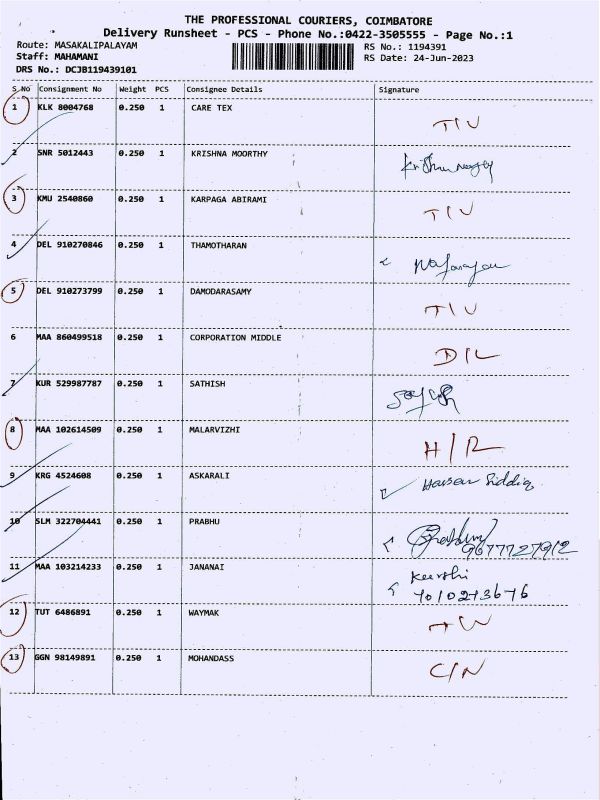 THE PROFESSIONAL COURIERS, COIMBATORE
Delivery Runsheet - PCS - Phone No.:0422-3505555 - Page No.:1
Route: MASAKALIPALAYAM RS No.: 1194391
Staff: MAHAMANI RS Date: 24-Jun-2023
DRS No.: DCJB119439101
S No Consignment No Weight PCS Consignee Details Signature
1 KLK 8004768 0.250 1 CARE TEX
T/U
2 SNR 5012443 0.250 1 KRISHNA MOORTHY
3 KMU 2540860 0.250 1 KARPAGA ABIRAMI
T/U
4 DEL 910270846 0.250 1 THAMOTHARAN
5 DEL 910273799 0.250 1 DAMODARASAMY
T/U
6 MAA 860499518 0.250 1 CORPORATION MIDDLE
D/L
7 KUR 529987787 0.250 1 SATHISH
8 MAA 102614509 0.250 1 MALARVIZHI
H/R
9 KRG 4524608 0.250 1 ASKARALI
Siddiq
10 SLM 322704441 0.250 1 PRABHU
9677727912
11 MAA 103214233 0.250 1 JANANAI
Keerthi
7010273676
12 TUT 6486891 0.250 1 WAYMAK
13 GGN 98149891 0.250 1 MOHANDASS
C/N